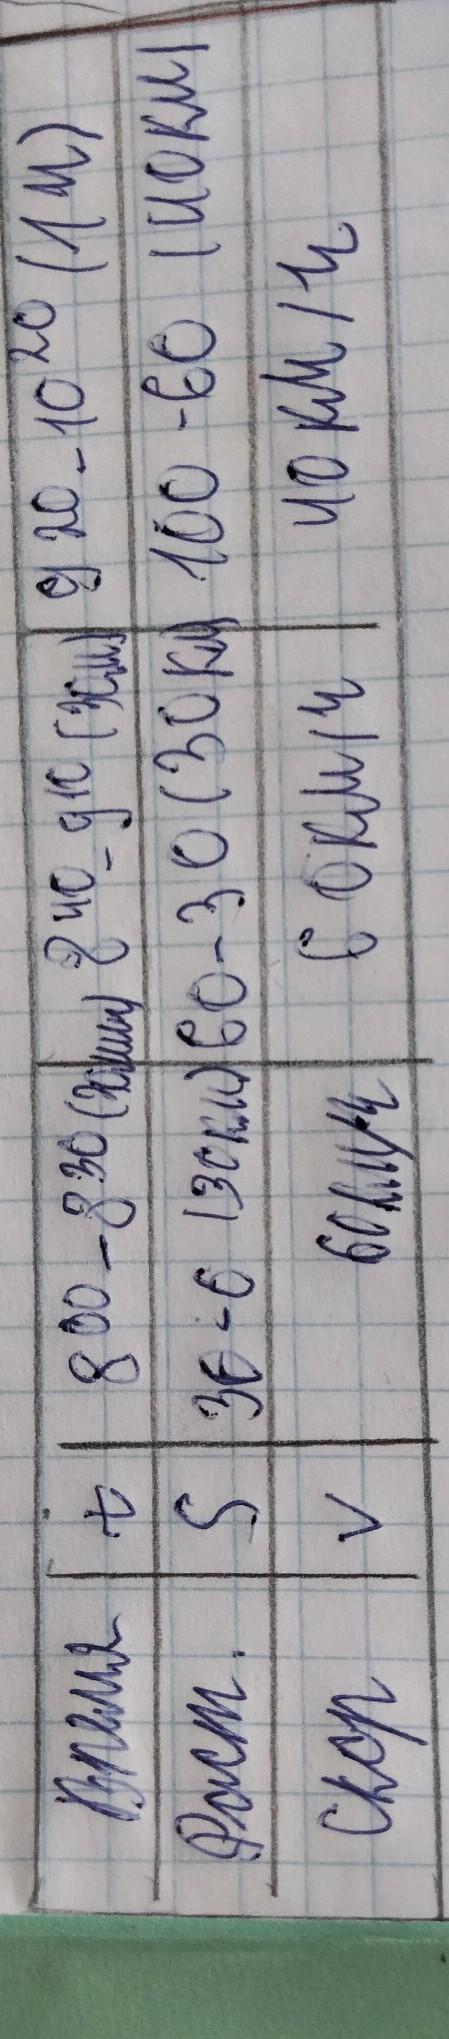 Время t 8 00 - 8 30 (30мин) 8 40 - 9 10 (30м) 9 20 - 10 20 (1ч)
Раст. S 30 - 0 (30км) 60 - 30 (30км) 100 - 60 (40км)
Скор v 60км/ч 60км/ч 40км/ч